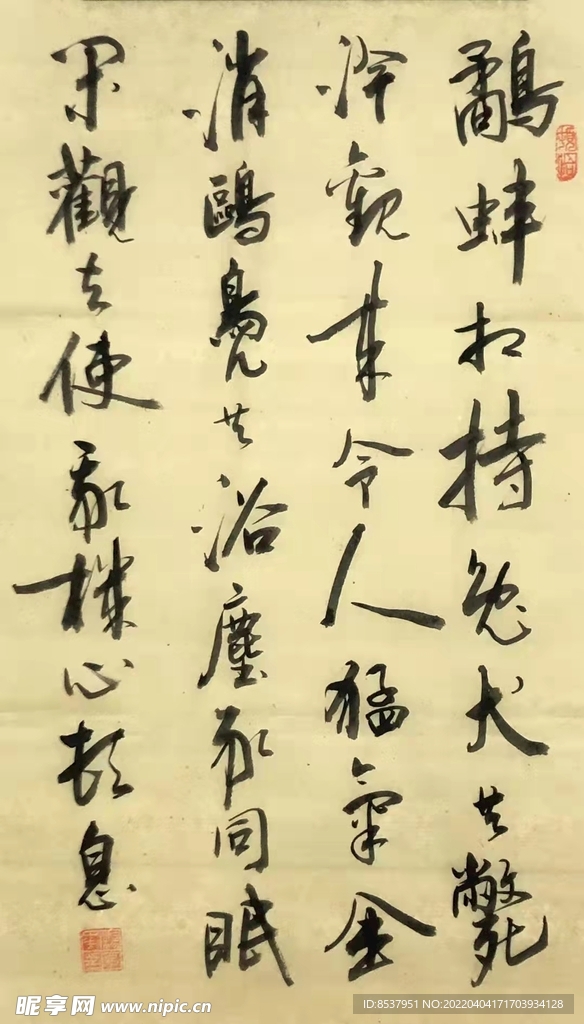 鷸蚌相持兔犬共斃
冷覷來令人猛氣全
消鷗鳧共浴塵豕同眠
閑觀去使我機心頓息
昵享网 www.nipic.cn
ID:8537951 NO:20220404171703934128